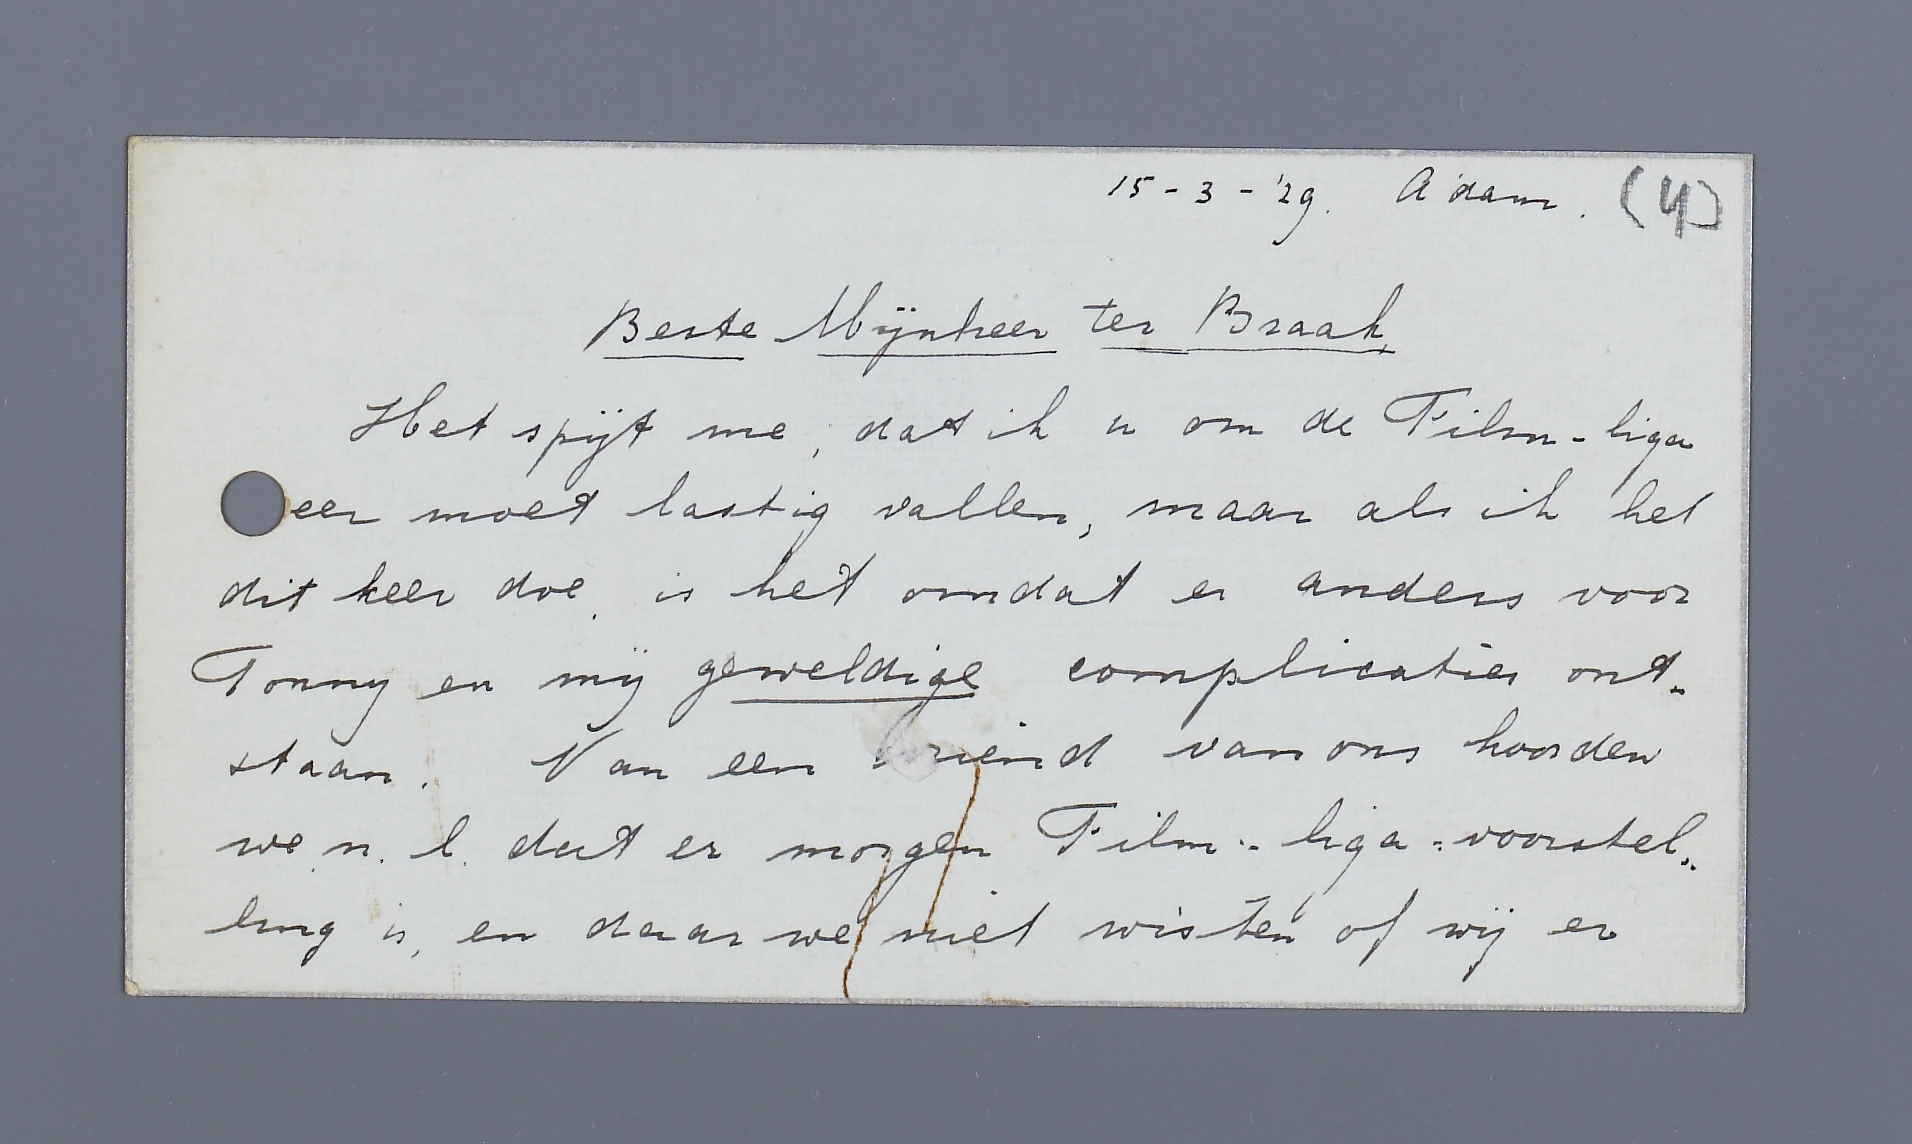 15-3-'29. A'dam. (4)
Beste Mijnheer ter Braak,
Het spijt me, dat ik u om de Film-liga
eer moet lastig vallen, maar als ik het
dit keer doe, is het omdat er anders voor
Tonny en mij geweldige complicaties ont-
staan. Van een vriend van ons hoorden
we n.l. dat er morgen Film-liga-voorstel-
ling is, en daar we niet wisten of wij er